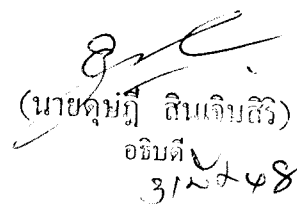 (นายดุษฎี สินเจิมสิริ)
อธิบดี